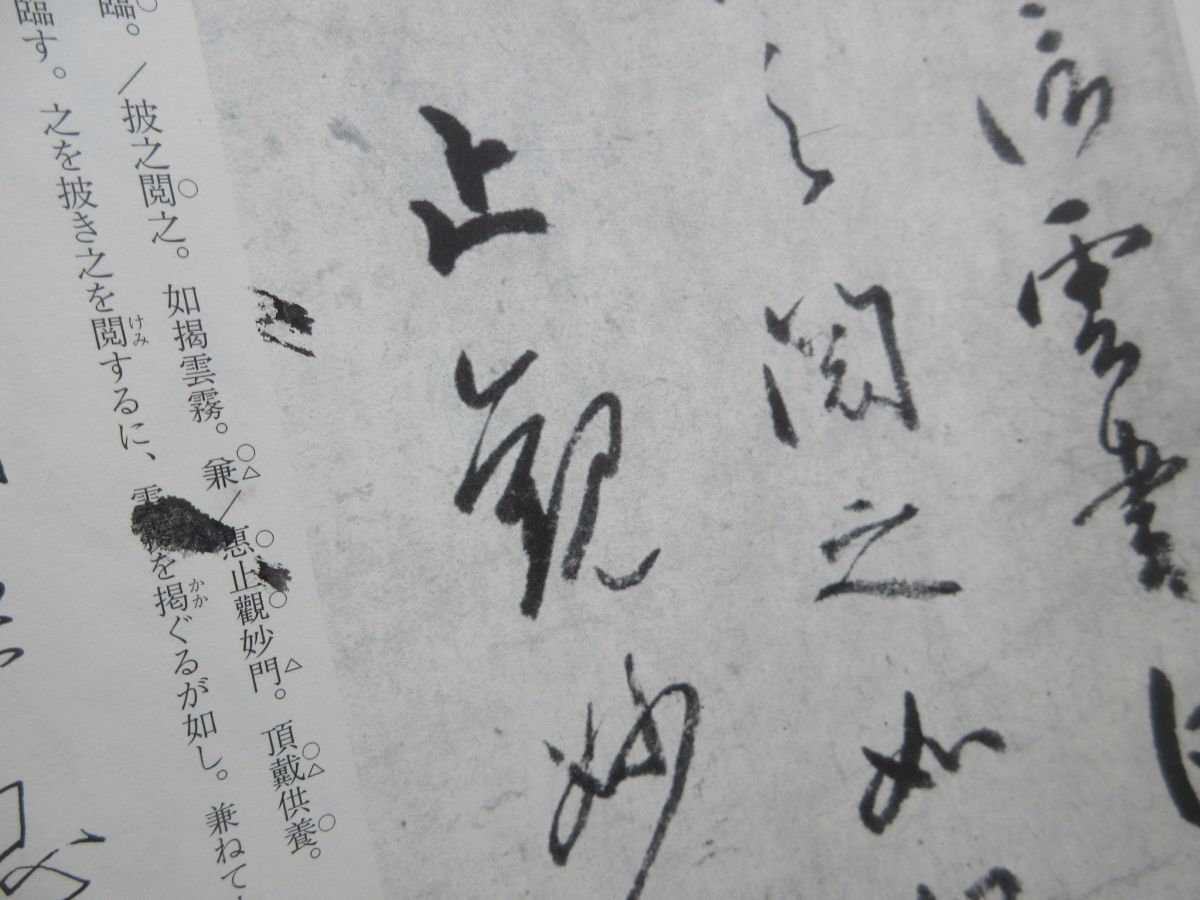 雲書
之閲之如
止觀妙
臨。／披之閲之。如揭雲霧。兼／惠止觀妙門。頂戴供養。
臨す。之を披き之を閲するに、雲霧を揭ぐるが如し。兼ねて
けみ
かか